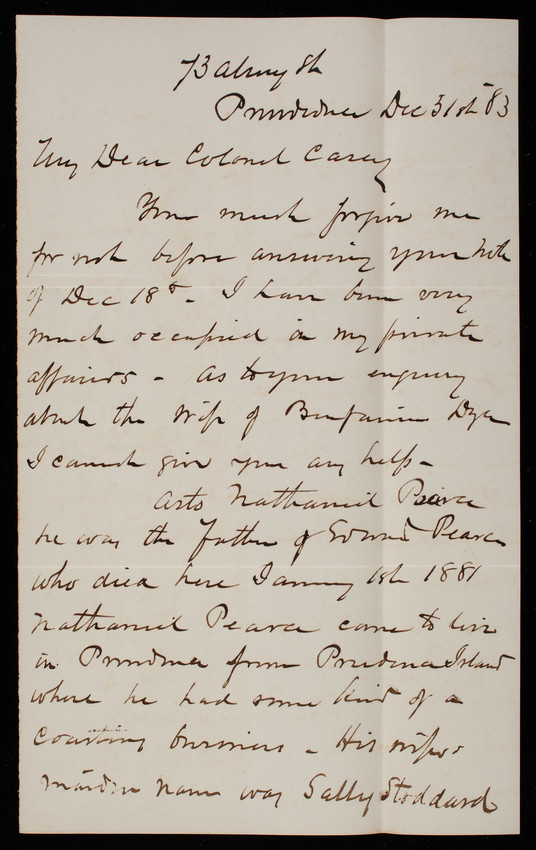 73 Almy St
Providence Dec 31st 83
My Dear Colonel Casey
You must forgive me
for not before answering your note
of Dec 18th - I have been very
much occupied in my private
affairs - As to your enquiry
about the wife of Benjamin Dyer
I cannot give you any help -
As to Nathaniel Pearce
he was the Father of Edward Pearce
who died here January 1st 1881
Nathaniel Pearce came to live
in Providence from Prudence Island
where he had some kind of a
coasting business - His wifes
maiden name was Sally Stoddard